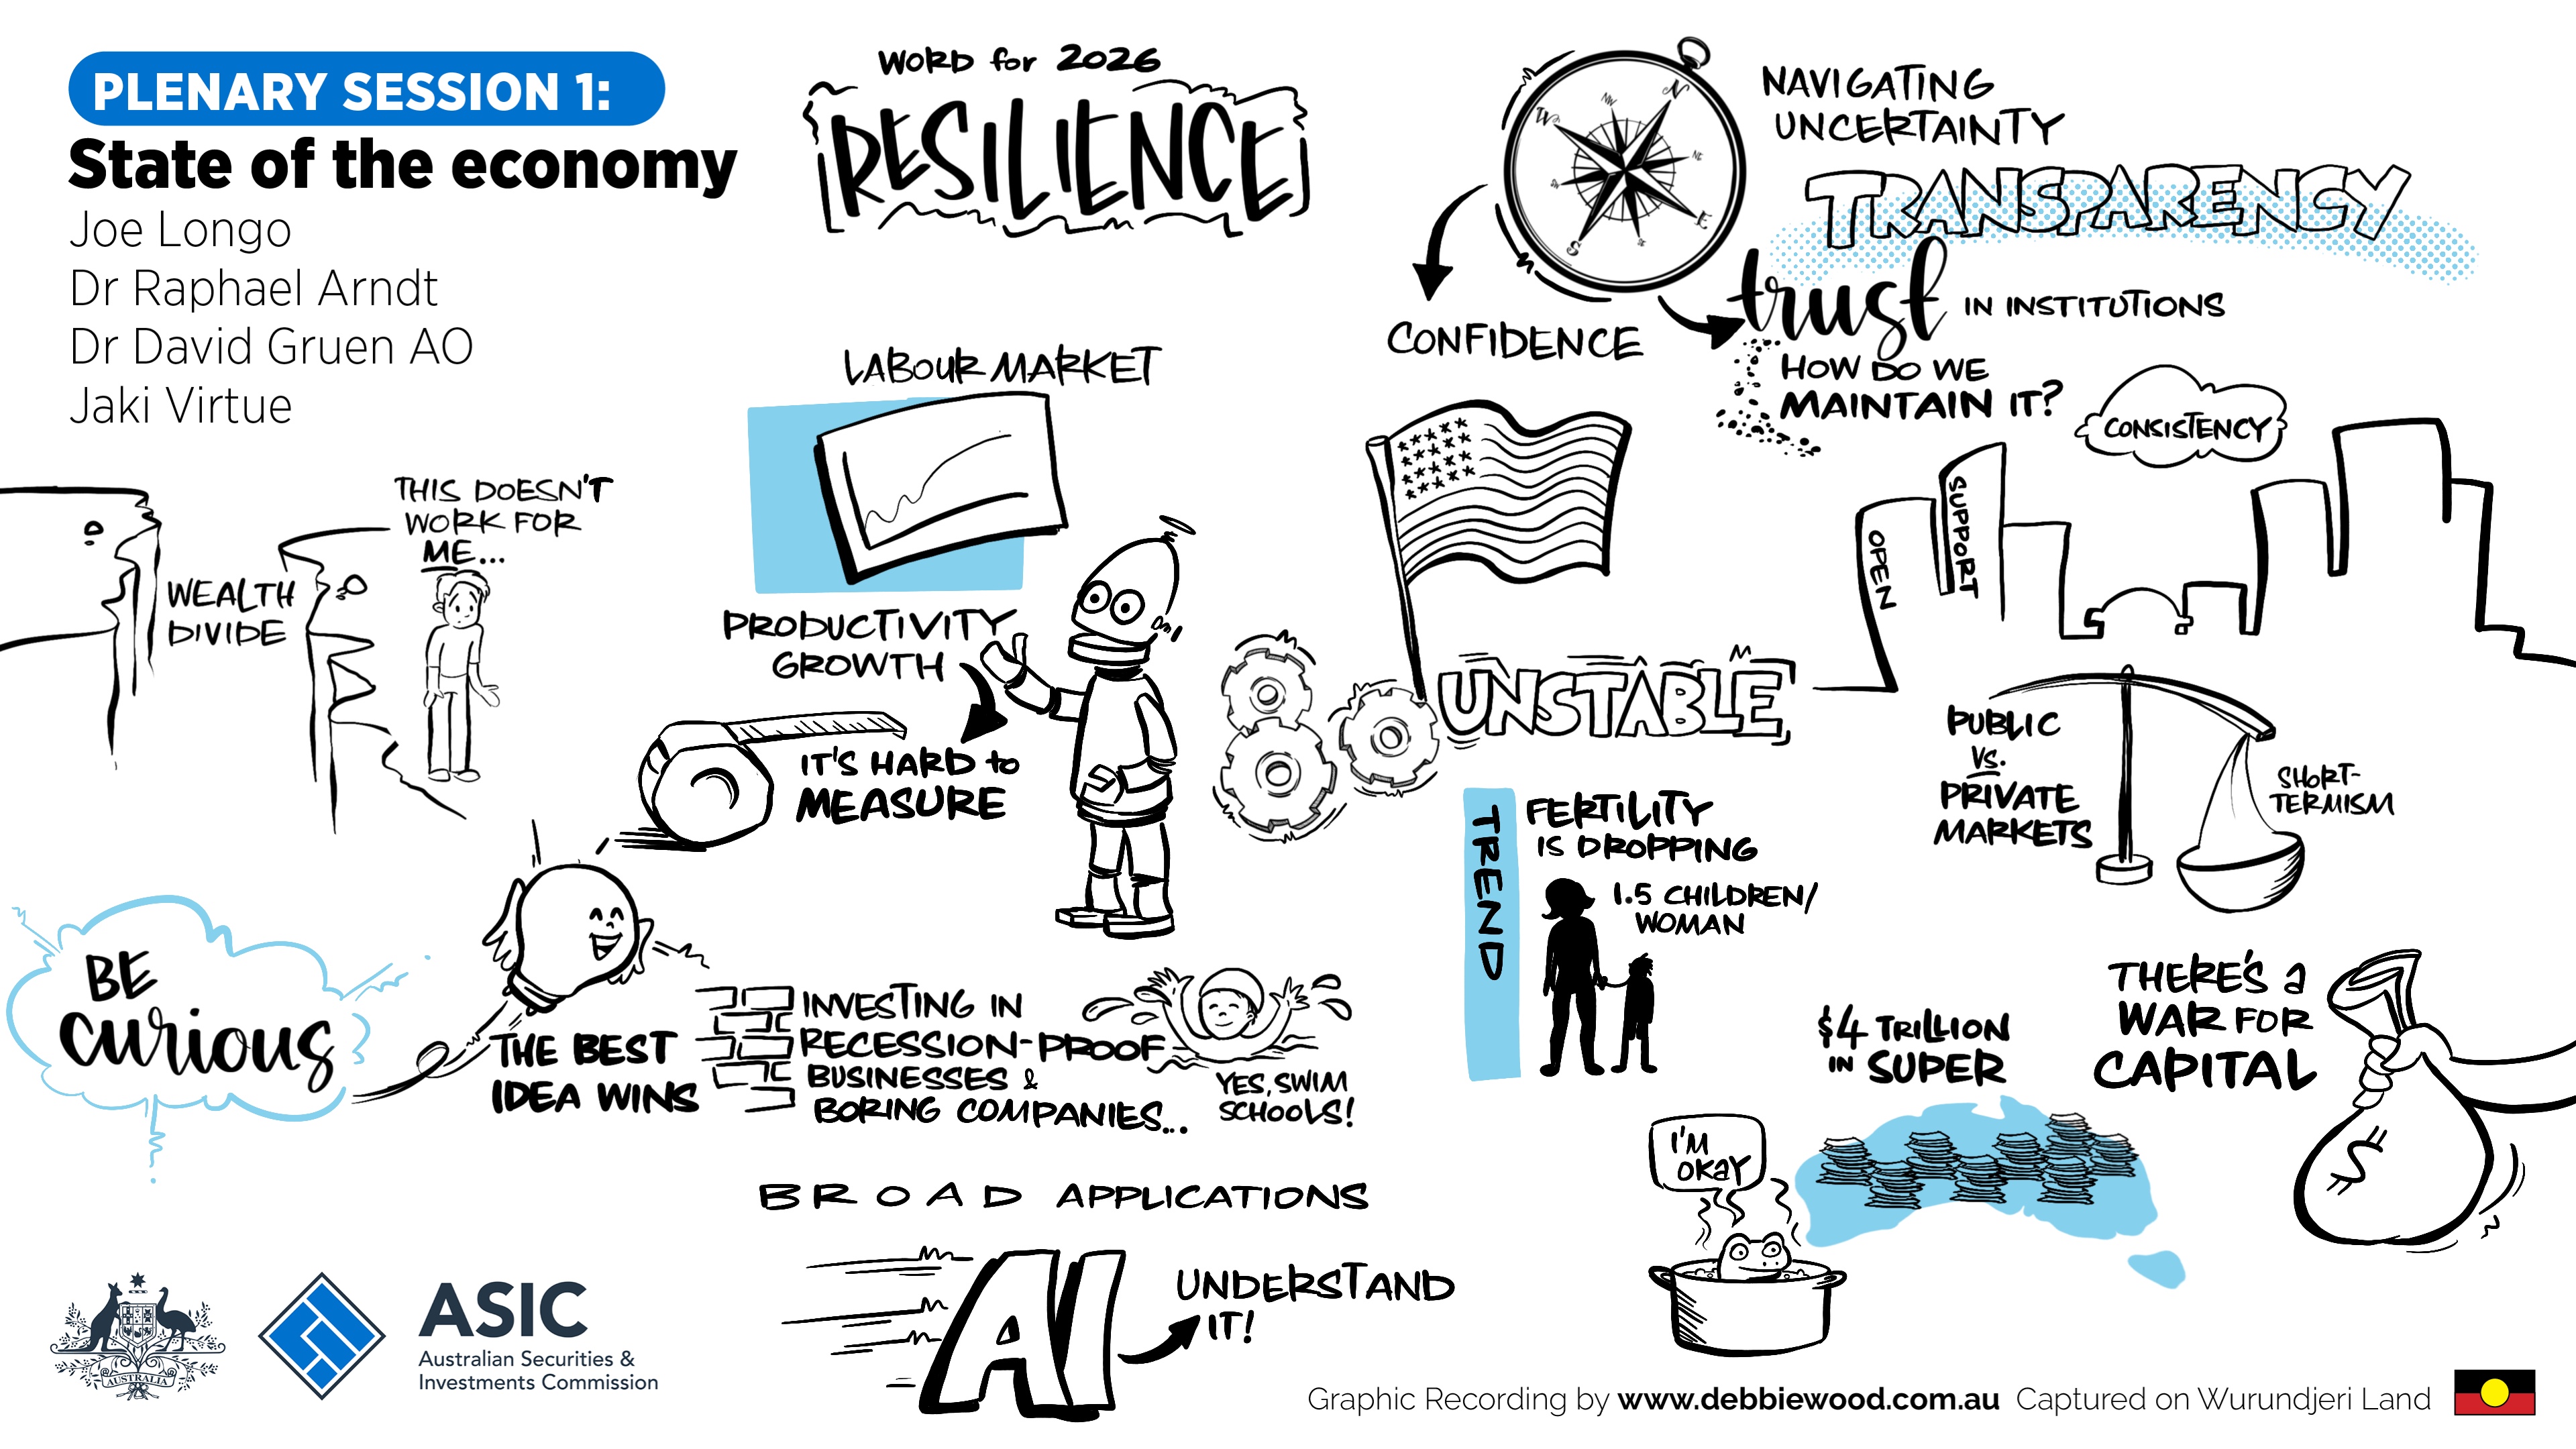 PLENARY SESSION 1:
State of the economy
Joe Longo
Dr Raphael Arndt
Dr David Gruen AO
Jaki Virtue
WORD for 2026
RESILIENCE
N
NW
W
NE
E
SE
S
SW
NAVIGATING
UNCERTAINTY
TRANSPARENCY
trust IN INSTITUTIONS
HOW DO WE
MAINTAIN IT?
CONFIDENCE
CONSISTENCY
OPEN
SUPPORT
LABOUR MARKET
THIS DOESN'T
WORK FOR
ME...
WEALTH
DIVIDE
PRODUCTIVITY
GROWTH
IT'S HARD to
MEASURE
UNSTABLE
PUBLIC
VS.
PRIVATE
MARKETS
SHORT-
TERMISM
TREND
FERTILITY
IS DROPPING
1.5 CHILDREN/
WOMAN
BE
curious
THE BEST
IDEA WINS
INVESTING IN
RECESSION-PROOF
BUSINESSES &
BORING COMPANIES...
YES, SWIM
SCHOOLS!
THERE'S a
WAR FOR
CAPITAL
$
$4 TRILLION
IN SUPER
I'M
OKAY
BROAD APPLICATIONS
AI
UNDERSTAND
IT!
AUSTRALIA
ASIC
Australian Securities &
Investments Commission
Graphic Recording by www.debbiewood.com.au Captured on Wurundjeri Land